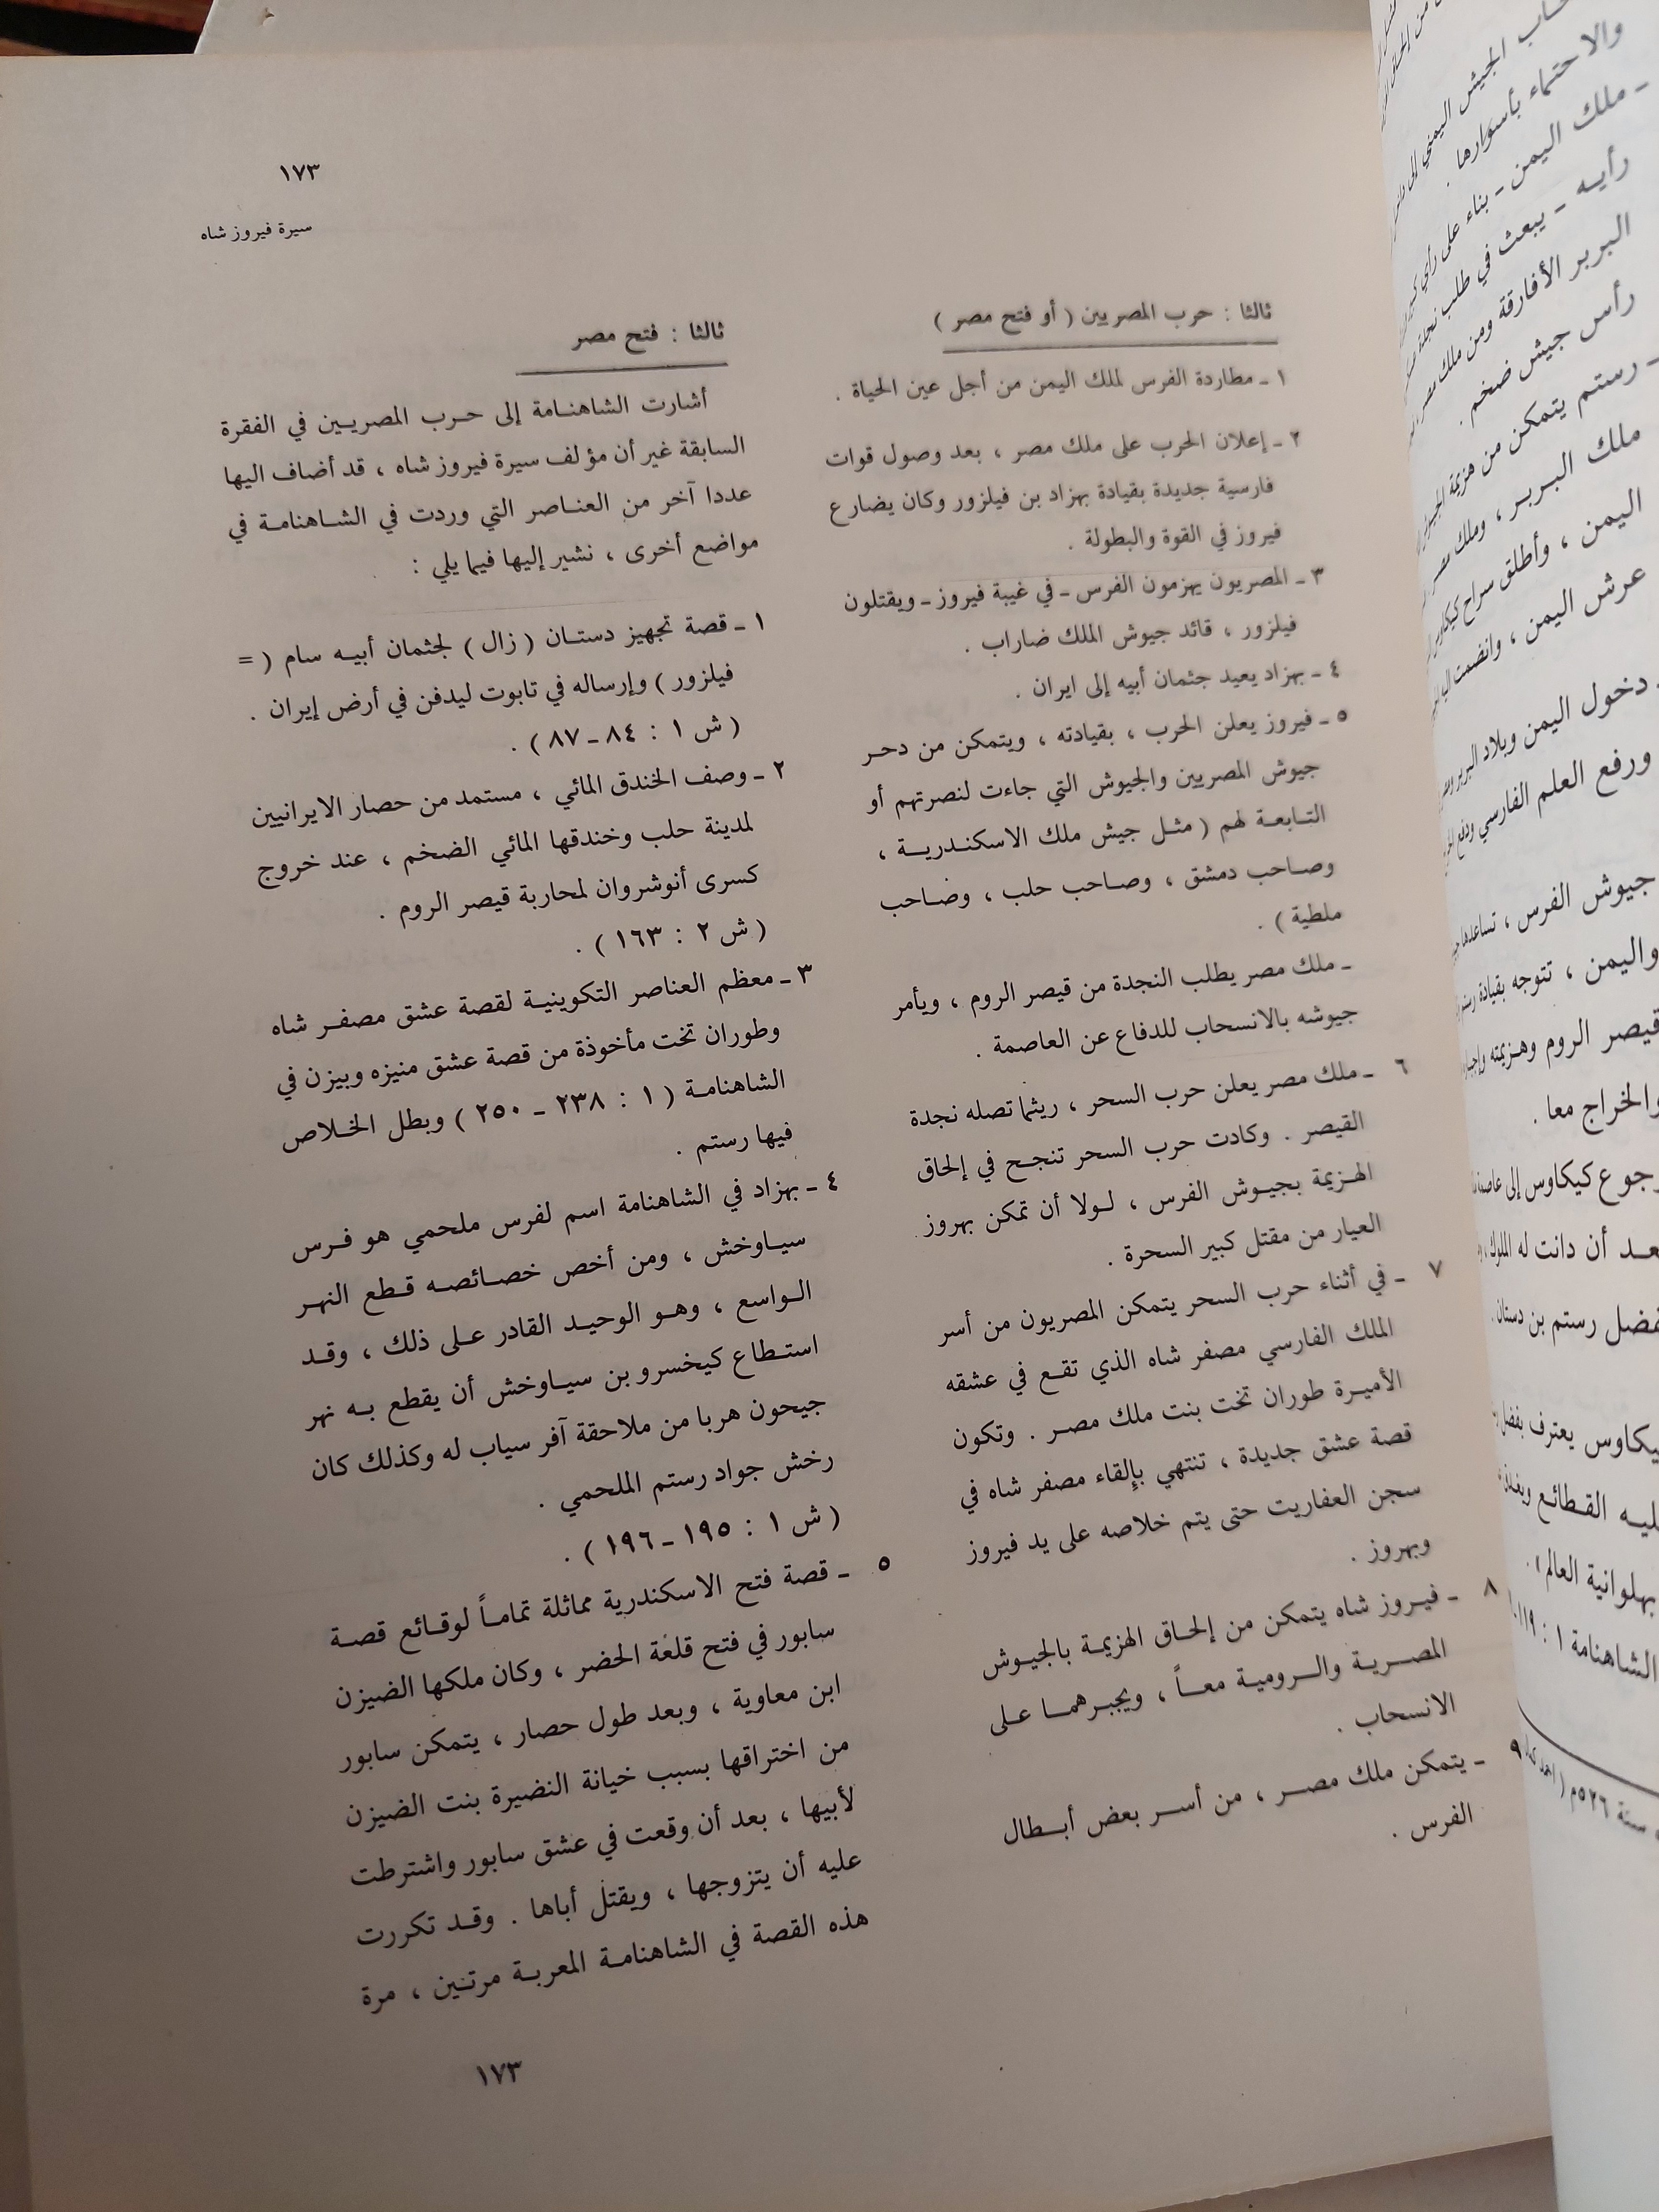 ١٧٣
سيرة فيروز شاه
ثالثا : حرب المصريين ( أو فتح مصر )
١ - مطاردة الفرس لملك اليمن من أجل عين الحياة .
٢ - إعلان الحرب على ملك مصر ، بعد وصول قوات
فارسية جديدة بقيادة بهزاد بن فيلزور وكان يضارع
فيروز في القوة والبطولة .
٣ - المصريون يهزمون الفرس - في غيبة فيروز - ويقتلون
فيلزور ، قائد جيوش الملك ضاراب .
٤ - بهزاد يعيد جثمان أبيه إلى ايران .
٥ - فيروز يعلن الحرب ، بقيادته ، ويتمكن من دحر
جيوش المصريين والجيوش التي جاءت لنصرتهم أو
التابعة لهم ( مثل جيش ملك الاسكندرية ،
وصاحب دمشق ، وصاحب حلب ، وصاحب
ملطية ) .
- ملك مصر يطلب النجدة من قيصر الروم ، ويأمر
جيوشه بالانسحاب للدفاع عن العاصمة .
٦ - ملك مصر يعلن حرب السحر ، ريثما تصله نجدة
القيصر . وكادت حرب السحر تنجح في إلحاق
الهزيمة بجيوش الفرس ، لولا أن تمكن بهروز
العيار من مقتل كبير السحرة .
٧ - في أثناء حرب السحر يتمكن المصريون من أسر
الملك الفارسي مصفر شاه الذي تقع في عشقه
الأميرة طوران تخت بنت ملك مصر . وتكون
قصة عشق جديدة ، تنتهي بإلقاء مصفر شاه في
سجن العفاريت حتى يتم خلاصه على يد فيروز
وبهروز .
٨ - فيروز شاه يتمكن من إلحاق الهزيمة بالجيوش
المصرية والرومية معاً ، ويجبرهما على
الانسحاب .
٩ - يتمكن ملك مصر ، من أسر بعض أبطال
الفرس .
ثالثا : فتح مصر
أشارت الشاهنامة إلى حرب المصريين في الفقرة
السابقة غير أن مؤلف سيرة فيروز شاه ، قد أضاف اليها
عددا آخر من العناصر التي وردت في الشاهنامة في
مواضع أخرى ، نشير إليها فيما يلي :
١ - قصة تجهيز دستان ( زال ) لجثمان أبيه سام ( =
فيلزور ) وإرساله في تابوت ليدفن في أرض إيران .
( ش ١ : ٨٤ - ٨٧ ) .
٢ - وصف الخندق المائي ، مستمد من حصار الايرانيين
لمدينة حلب وخندقها المائي الضخم ، عند خروج
كسرى أنوشروان لمحاربة قيصر الروم .
( ش ٢ : ١٦٣ ) .
٣ - معظم العناصر التكوينية لقصة عشق مصفر شاه
وطوران تخت مأخوذة من قصة عشق منيزه وبيزن في
الشاهنامة ( ١ : ٢٣٨ - ٢٥٠ ) وبطل الخلاص
فيها رستم .
٤ - بهزاد في الشاهنامة اسم لفرس ملحمي هو فرس
سياوخش ، ومن أخص خصائصه قطع النهر
الواسع ، وهو الوحيد القادر على ذلك ، وقد
استطاع كيخسرو بن سياوخش أن يقطع به نهر
جيحون هربا من ملاحقة آفر سياب له وكذلك كان
رخش جواد رستم الملحمي .
( ش ١ : ١٩٥ - ١٩٦ ) .
٥ - قصة فتح الاسكندرية مماثلة تماماً لوقائع قصة
سابور في فتح قلعة الحضر ، وكان ملكها الضيزن
ابن معاوية ، وبعد طول حصار ، يتمكن سابور
من اختراقها بسبب خيانة النضيرة بنت الضيزن
لأبيها ، بعد أن وقعت في عشق سابور واشترطت
عليه أن يتزوجها ، ويقتل أباها . وقد تكررت
هذه القصة في الشاهنامة المعربة مرتين ، مرة
١٧٣
الجيش اليمني إلى
والاحتماء بأسوارها .
- ملك اليمن - بناء على رأي
رأيه - يبعث في طلب نجدة
البربر الأفارقة ومن ملك مصر
رأس جيش ضخم .
- رستم يتمكن من هزيمة
ملك البربر ، وملك مصر
اليمن ، وأطلق سراح كيكاوس
عرش اليمن ، وانضمت اليه
دخول اليمن وبلاد البربر
ورفع العلم الفارسي ودفع
جيوش الفرس ، تساعدها
واليمن ، تتوجه بقيادة رستم
قيصر الروم وهزيمته
والخراج معا .
رجوع كيكاوس إلى
بعد أن دانت له الملوك
بفضل رستم بن دستان
كيكاوس يعترف بفضل
عليه القطائع
بهلوانية العالم
الشاهنامة ١ :
سنة ٥٢٦م